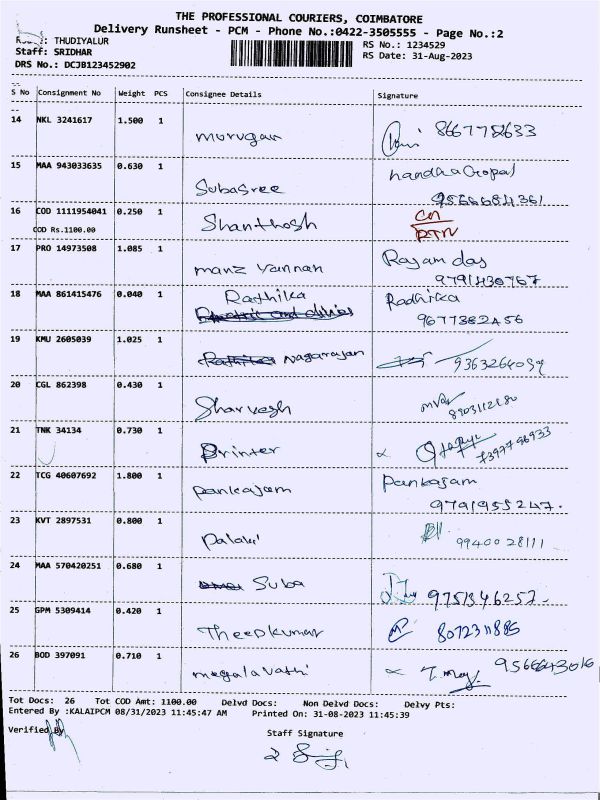 THE PROFESSIONAL COURIERS, COIMBATORE
Delivery Runsheet - PCM - Phone No.:0422-3505555 - Page No.:2
THUDIYALUR
RS No.: 1234529
Staff: SRIDHAR
RS Date: 31-Aug-2023
DRS No.: DCJB123452902
S No Consignment No Weight PCS Consignee Details Signature
14 NKL 3241617 1.500 1 murugan
15 MAA 943033635 0.630 1 Subasree nandha Gopal
16 COD 1111954041 0.250 1 Shanthosh CN
COD Rs.1100.00 RTN
17 PRO 14973508 1.085 1 manz Vannan Rajam das
18 MAA 861415476 0.040 1 Rathika Radhika
9677382456
19 KMU 2605039 1.025 1 Nagarajan
20 CGL 862398 0.430 1 Sharvesh
21 TNK 34134 0.730 1 Printer
22 TCG 40607692 1.800 1 pankajam Pankajam
9791955247.
23 KVT 2897531 0.800 1 Palani 99400 28111
24 MAA 570420251 0.680 1 Suba 9751346257
25 GPM 5309414 0.420 1 Theepkumar 8072311885
26 BOD 397091 0.710 1 megalavathi 9566643016
Tot Docs: 26 Tot COD Amt: 1100.00 Delvd Docs: Non Delvd Docs: Delvy Pts:
Entered By :KALAIPCM 08/31/2023 11:45:47 AM Printed On: 31-08-2023 11:45:39
Verified By
Staff Signature